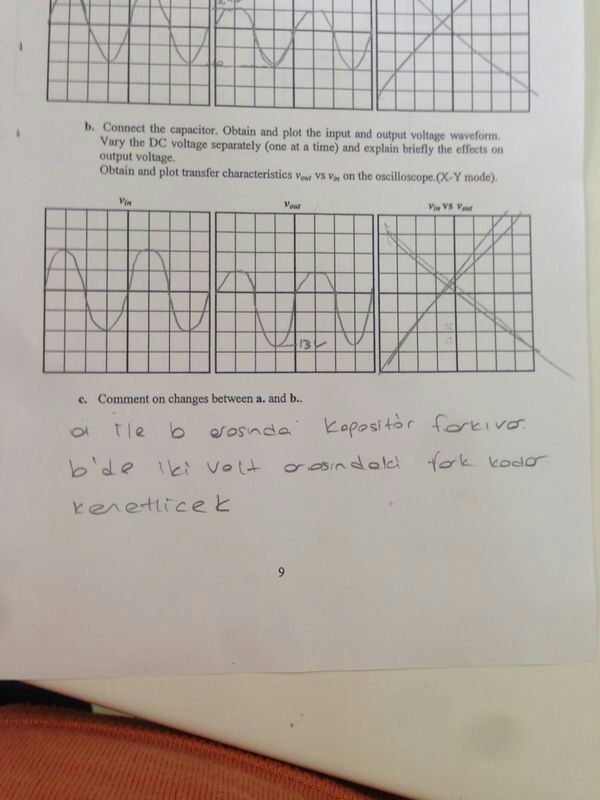 b. Connect the capacitor. Obtain and plot the input and output voltage waveform.
Vary the DC voltage separately (one at a time) and explain briefly the effects on
output voltage.
Obtain and plot transfer characteristics vout vs vin on the oscilloscope.(X-Y mode).
vin
vout
vin vs vout
13V
c. Comment on changes between a. and b..
a ile b arasında kapasitör farkı var.
b'de iki volt arasındaki fark kadar
kenetlicek
9